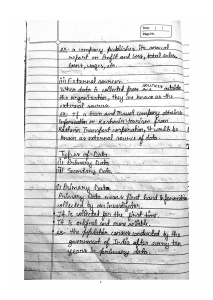 Date: / /
Page No.
ex- a company publishes its annual
report on Profit and loss, total sales,
loans, wages, etc.
ii) External sources:-
When data is collected from sources outside
the organisation, they are known as the
external sources.
ex- If a tour and Travel company obtains
information on Karnataka tourism from
Karnataka Transport corporation, it would be
known as external source of data.
Types of Data
i) Primary Data
ii) Secondary Data
i) Primary Data
Primary Data means first hand information
collected by an investigator.
• It is collected for the first time.
• It is original and more reliable.
• ex- the population census conducted by the
government of India after every ten
years is primary data.